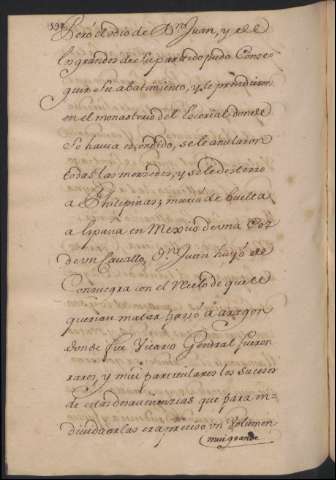 594
Pero el odio de Dn Juan, y el de
los grandes de su partido pudo Conse-
guir su abatimiento, y se prendieron
en el monasterio del Escorial donde
se havia escondido, se le anularon
todas las mercedes, y se le desterro
a Philipinas, murio de buelta
a España en Mexico de una Coz
de un Cavallo, Dn Juan huyó de
Consuegra con el rezelo de que le
querian matar, huyó a Aragon
donde fue Vicario General fueron
raros, y mui particulares los sucesos
de estas desavenencias que para in-
dividuarlas era preciso un Volumen
mui grande